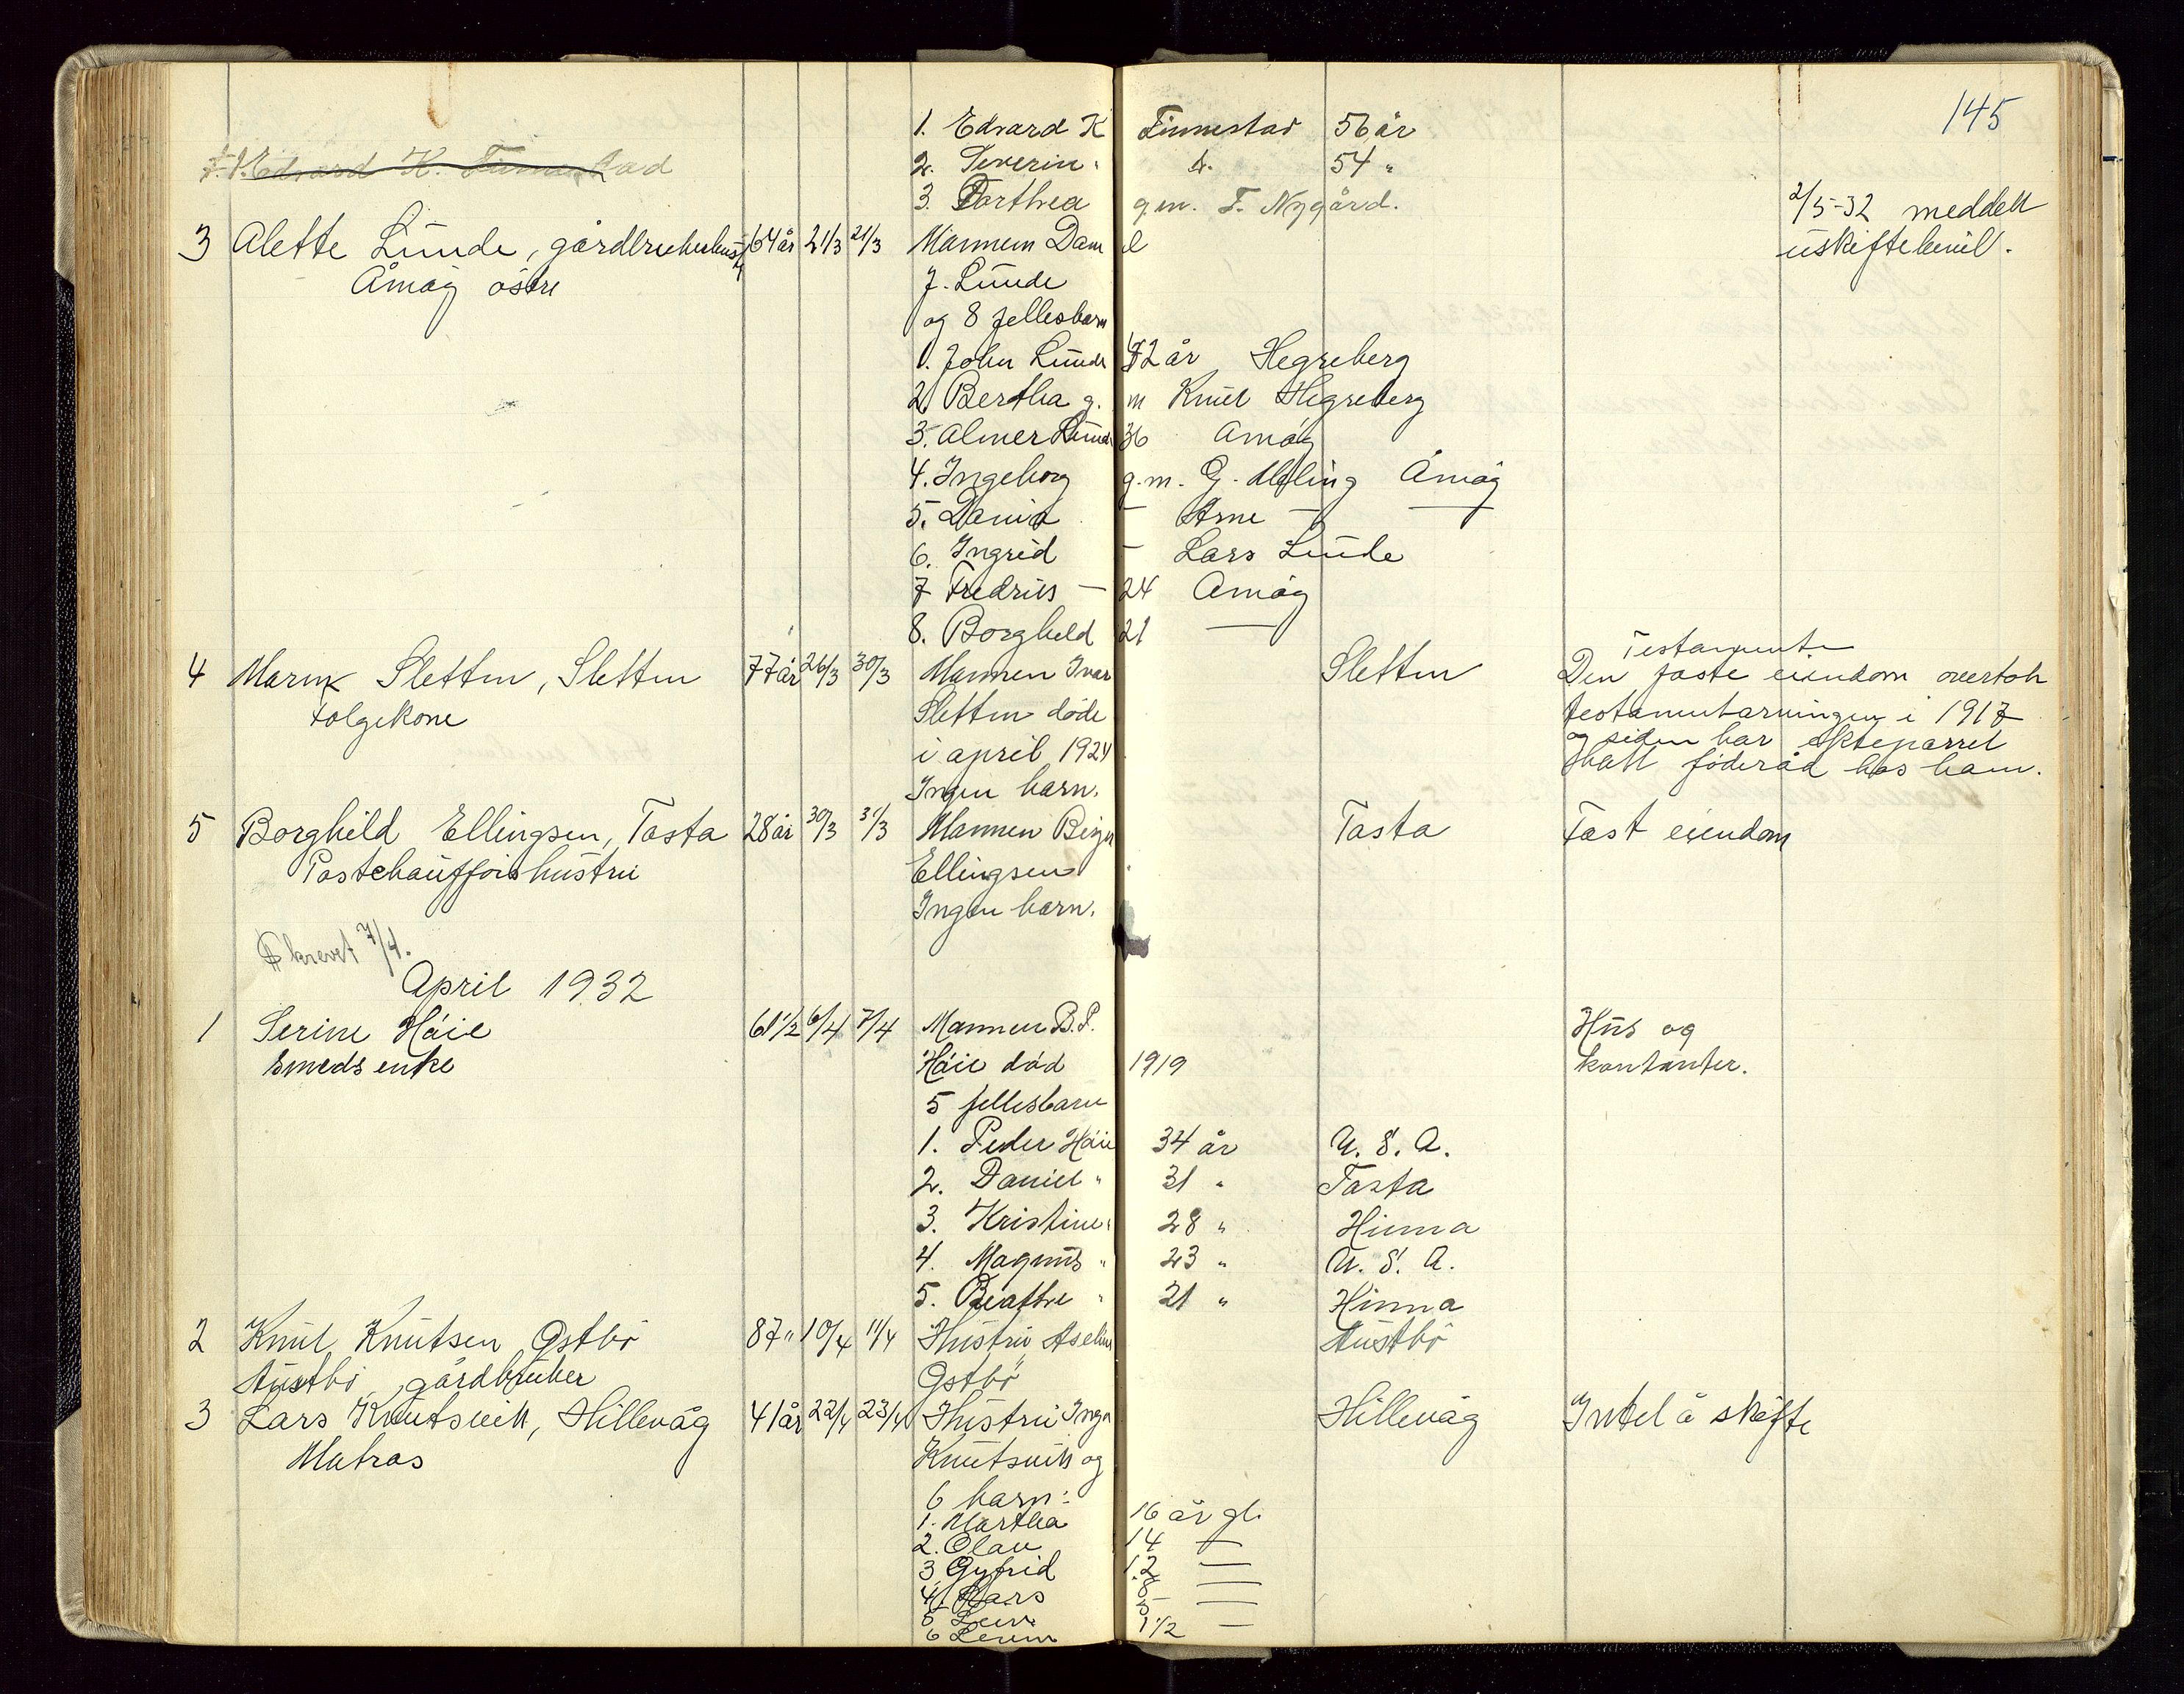 145
1. Edvard K Finnestad 56 år
Edvard K. Finnestad
2. Severin " d. 54 "
3. Dorthea g.m. F. Nygård.
2/5-32 meddelt
uskiftebevil.
3 Alette Lunde, gårdbrukerhustr 64 år 21/3 21/3 Mannen Daniel
Åmøy østre J. Lunde
og 8 fellesbarn
1. John Lunde 42 år Hegreberg
2. Bertha g. m Knut Hegreberg
3. Almer Lunde 36 Amøy
4. Ingeborg g.m. G. Åmøy
5. — Arne — —
6. Ingrid — Lars Lunde
7 Fredrus — 24 Amøy
8. Borghild 21 —
Testamente
4 Slettm, Slettm 77 år 26/3 30/3 Mannen Ivar Slettm Den faste eiendom overtok
Folgekone Slettm døde testamentarvingen i 1917
i april 1924 og siden har ekteparret
hatt føderåd hos ham.
Ingen barn.
5 Borghild Ellingsen, Tasta 28 år 30/3 31/3 Mannen Birger Tasta Fast eiendom
Postchaufførshustru Ellingsen
Ingen barn.
Skrevet 7/4.
April 1932
1 Serine Håie 61 1/2 6/4 7/4 Mannen B.P. Hus og
smeds enke Håie død 1919 kontanter.
5 fellesbarn
1. Peder Håie 34 år U. S. A.
2. Daniel " 31 " Tasta
3. Kristine " 28 " Hinna
4. Magnus " 23 " U. S. A.
5. Beathe " 21 " Hinna
2 Knut Knutsen Østbø 87 " 10/4 11/4 Hustru Aseline Austbø
Austbø, gårdbruker Østbø
3 Lars Knutsvik, Hillevåg 41 år 22/4 23/4 Hustru Inga Hillevåg Intet å skifte
Matros Knutsvik og
6 barn:
1. Martha 16 år gl.
2. Olav 14 —
3 Gyfrid 12 —
4 Lars 8 —
5 5 —
6 1 1/2 —